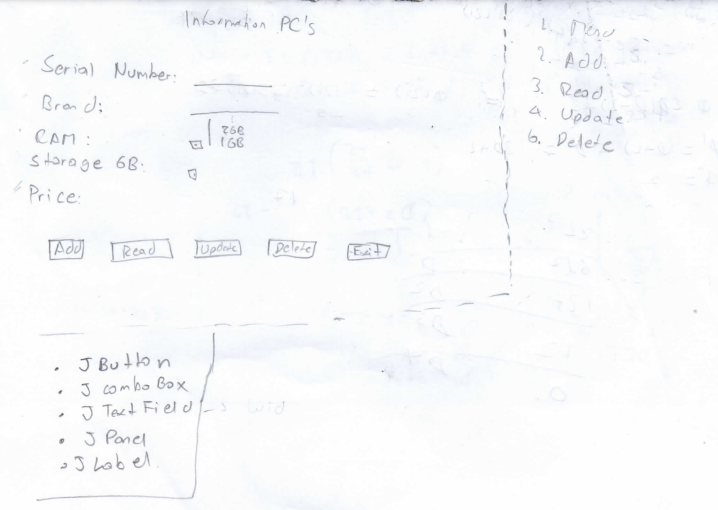 Information PC's
Serial Number:
Brand:
RAM:
2GB
1GB
Storage GB:
Price:
Add Read Update Delete Exit
1. Menu
2. Add
3. Read
4. Update
6. Delete
• J Button
• J comboBox
• J TextField
• J Panel
• J Label